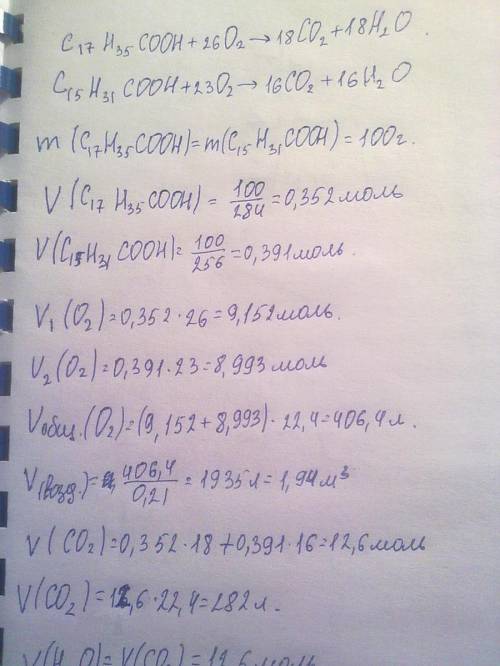 C₁₇H₃₅COOH+26O₂→18CO₂+18H₂O.
C₁₅H₃₁COOH+23O₂→16CO₂+16H₂O
m(C₁₇H₃₅COOH)=m(C₁₅H₃₁COOH)=100г.
V(C₁₇H₃₅COOH)=100/284=0,352моль
V(C₁₅H₃₁COOH)=100/256=0,391моль.
V₁(O₂)=0,352·26=9,152моль.
V₂(O₂)=0,391·23=8,993моль
Vобщ.(O₂)=(9,152+8,993)·22,4=406,4л.
V(возд.)=406,4/0,21=1935л=1,94м³
V(CO₂)=0,352·18+0,391·16=12,6моль
V(CO₂)=12,6·22,4=282л.
V(H₂O)=V(CO₂)=12,6моль